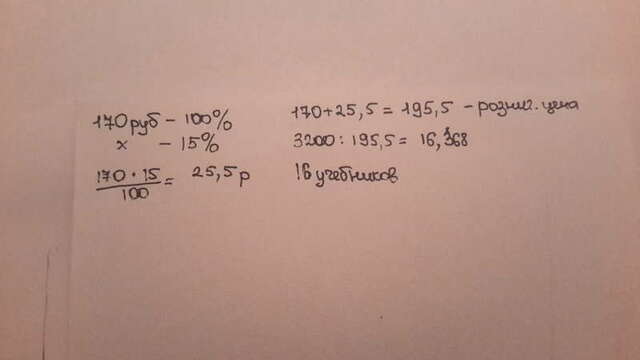 170 руб – 100%
х – 15%
170 · 15
100
= 25,5 р
170 + 25,5 = 195,5 – розниг. цена
3200 : 195,5 = 16,368
16 учебников